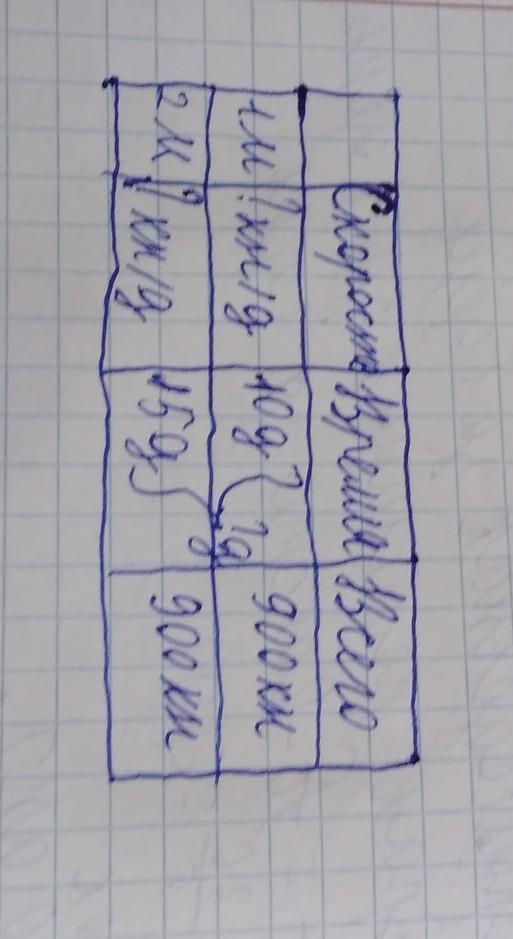 Скорость Время Всего
1м ? кн/д 10д ?д 900 кн
2м ? кн/д 15д 900 кн